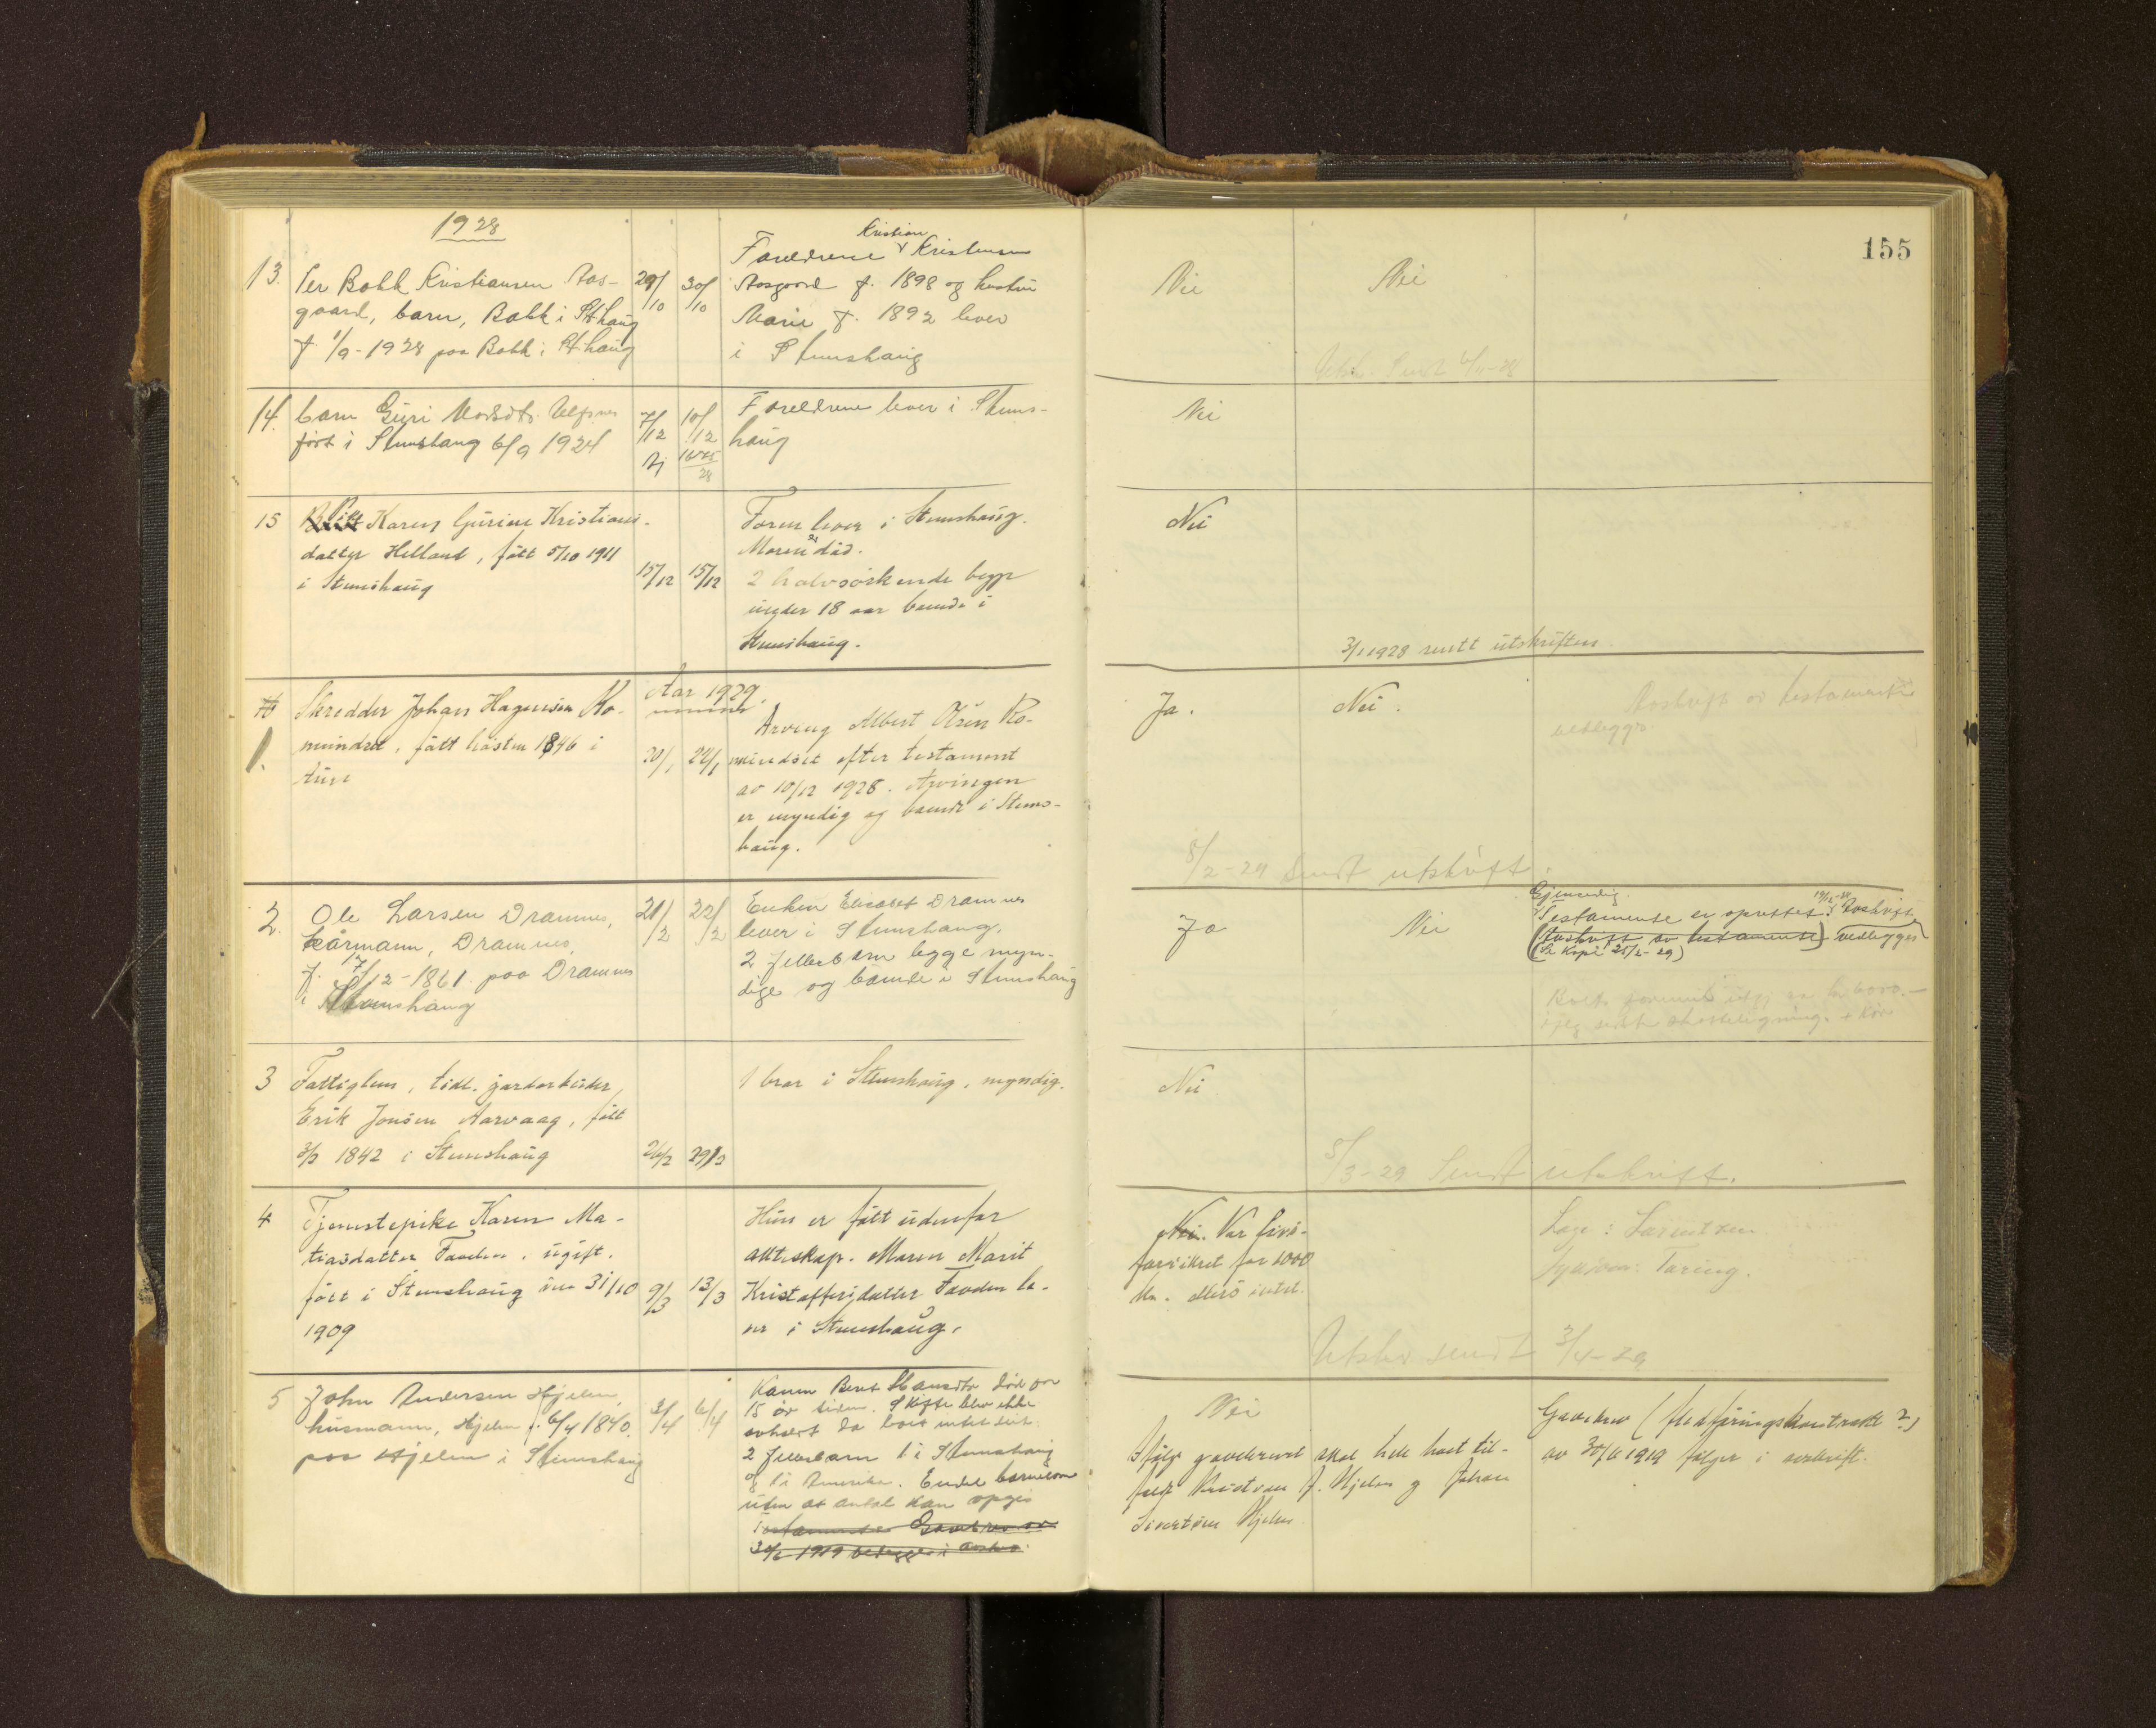 155
1928
13. Per Bakk Kristiansen Aas-
gaard, barn, Bakk i Sthaug
f. 1/9-1928 paa Bakk i Sthaug
29/10
30/10
Foreldrene Kristian Kristensen
Aasgaard f. 1898 og hustru
Marie f. 1892 lever
i Stemshaug
Nei
Nei
Utskr. Sendt 6/11-28
14. barn Guri
født i Stemshaug 6/9 1924
7/12
10/12
Foreldrene lever i Stems-
haug
Nei
15 Karen Gurine Kristians-
datter Helland, født 5/10 1911
i Stemshaug
15/12
15/12
Faren lever i Stemshaug.
Moren er død.
2 halvsøskende begge
under 18 aar boende i
Stemshaug.
Nei
3/1 1928 sendt utskriften
Aar 1929.
1. Skredder Johan Hagensen Ro-
mundset, født høsten 1846 i
Aure
20/1
24/1
Arving Albert Olsen Ro-
mundset efter testament
av 10/12 1928. Arvingen
er myndig og boende i Stems-
haug.
Ja.
Nei.
Avskrift av testamente
vedlegges
8/2-29 Sendt utskrift.
2. Ole Larsen Dramnes,
kårmann, Dramnes,
f. 17/12-1861 paa Dramnes
i Stemshaug
21/2
22/2
Enken Elisabet Dramnes
lever i Stemshaug.
2 fellesbarn begge myn-
dige og boende i Stemshaug
Ja
Nei
Gjensidig
Testamente er oprettet. Avskrift
(Avskrift av testamente) vedlegges
(Se Kopi 25/2-29)
3 Fattiglem, tidl. gardarbeider
Erik Jonsen Aarvaag, født
3/2 1842 i Stemshaug
26/2
29/2
1 bror i Stemshaug, myndig.
Nei
5/3-29 Sendt utskrift.
4 Tjenestepike Karen Ma-
tiasdatter Tavden, ugift.
født i Stemshaug den 31/10
1909
9/3
13/3
Hun er født udenfor
ekteskap. Moren Marit
Kristoffersdatter Tavden le-
ver i Stemshaug.
Nei. Var livs-
forsikret for 1000
kr. Ellers intet.
Utskr sendt 3/4-29
5 John Andersen Hjelen,
husmann, Hjelen f. 6/4 1840
paa Hjelen i Stemshaug
3/4
6/4
Konen Beret Hansdtr død for
15 år siden. Skifte blev ikke
avholdt da boet intet eiet.
2 fellesbarn 1 i Stemshaug
og 1 i Amerika. Endel barnebarn
uten at antal kan opgis
Nei
Ifølge gavebrevet skal hele boet til-
falde Knut J. Hjelen og Johan
Sivertsen Hjelen
Gavebrev (fledføringskontrakt?)
av 30/6 1919 følger i avskrift.